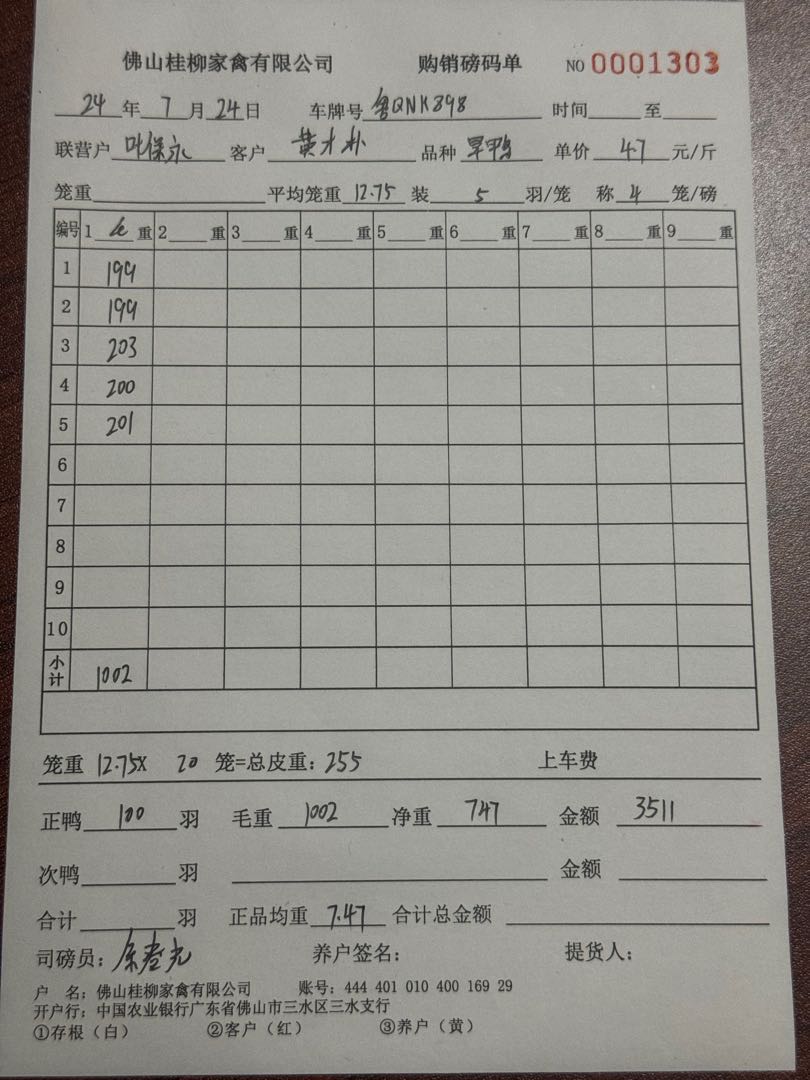 佛山桂柳家禽有限公司 购销磅码单 NO 0001303
24 年 7 月 24 日 车牌号 鲁QNK898 时间 至
联营户 叶保永 客户 黄才朴 品种 旱鸭 单价 47 元/斤
笼重 平均笼重 12.75 装 5 羽/笼 称 4 笼/磅
编号 1 重 2 重 3 重 4 重 5 重 6 重 7 重 8 重 9 重
1 199
2 199
3 203
4 200
5 201
6
7
8
9
10
小计 1002
笼重 12.75X 20 笼=总皮重: 255 上车费
正鸭 100 羽 毛重 1002 净重 747 金额 3511
次鸭 羽 金额
合计 羽 正品均重 7.47 合计总金额
司磅员: 养户签名: 提货人:
户 名: 佛山桂柳家禽有限公司 账号: 444 401 010 400 169 29
开户行: 中国农业银行广东省佛山市三水区三水支行
①存根（白） ②客户（红） ③养户（黄）